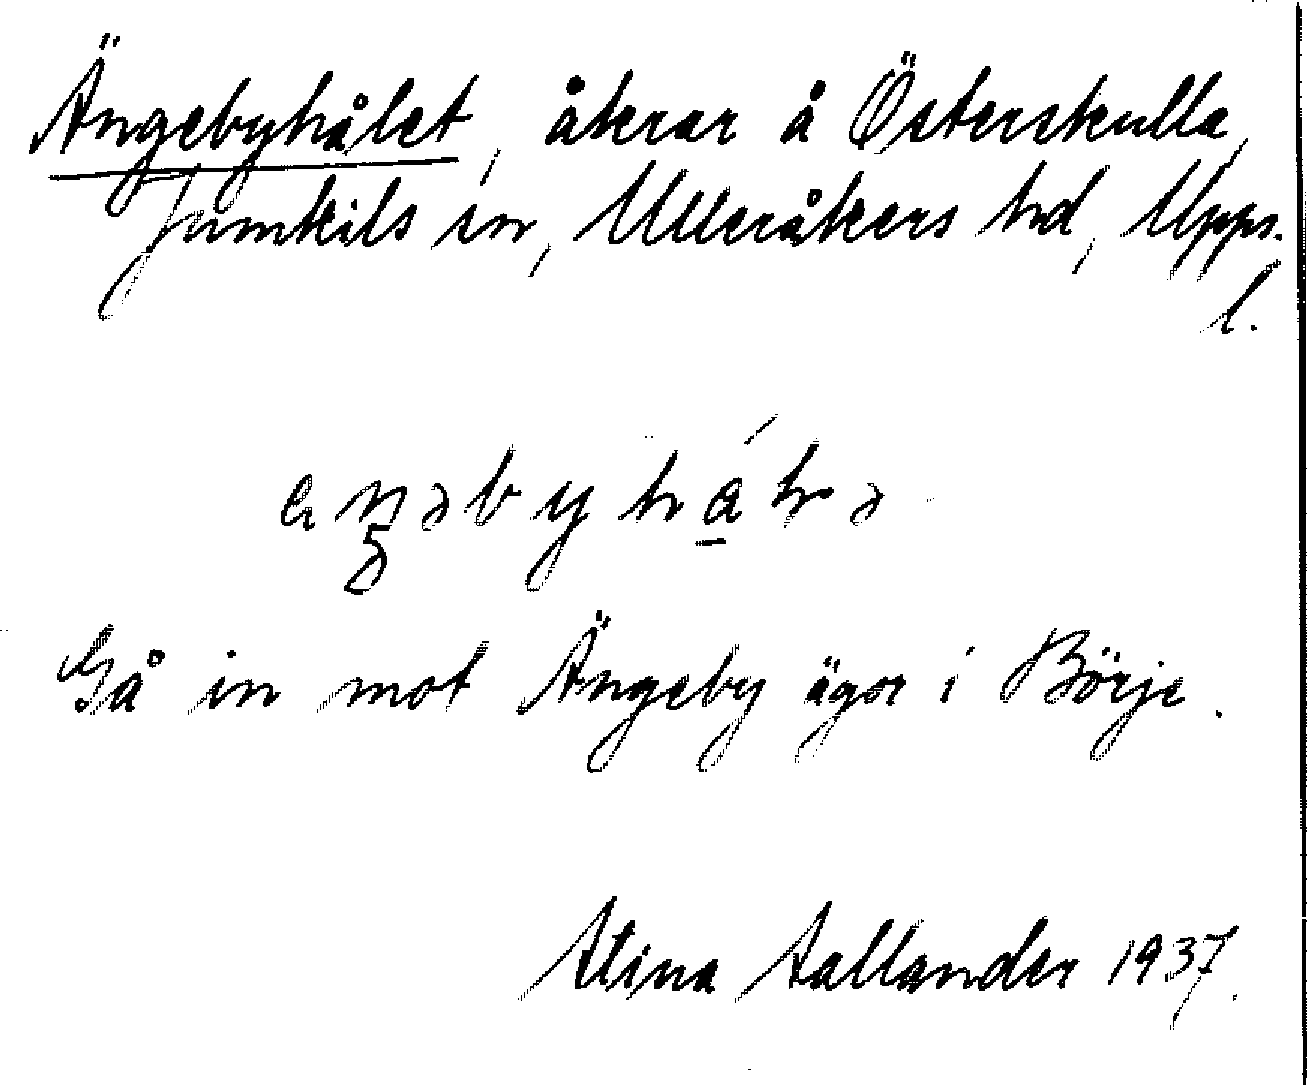 Ängebyhålet, åkrar å Österskulla,
Jumkils sn, Ulleråkers hd, Upps.
l.
Gå in mot Ängeby ägor i Börje.
Stina Sallander 1937.